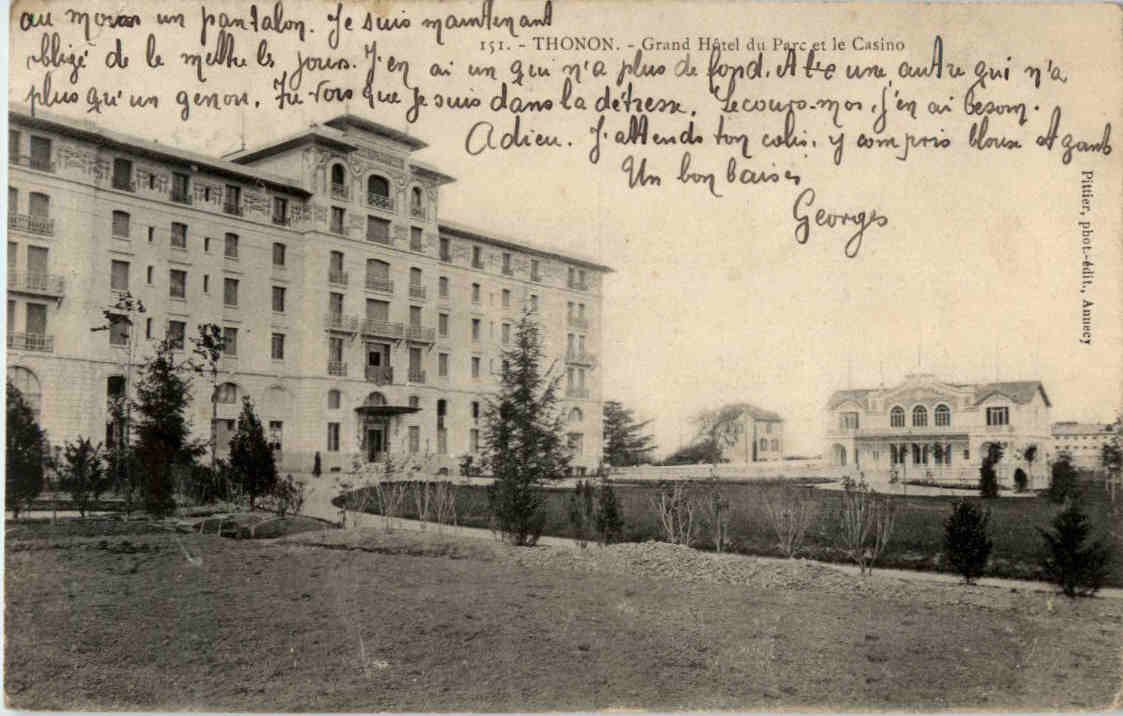 au moins un pantalon. Je suis maintenant
151. - THONON. - Grand Hôtel du Parc et le Casino
obligé de le mettre ls jours. J'en ai un qui n'a plus de fond. Et une autre qui n'a
plus qu'un genou. Tu vois que je suis dans la détresse. Secours-moi, j'en ai besoin.
Adieu. J'attends ton colis, y compris blouse et gants
Un bon baiser
Georges
Pittier, phot.-édit., Annecy